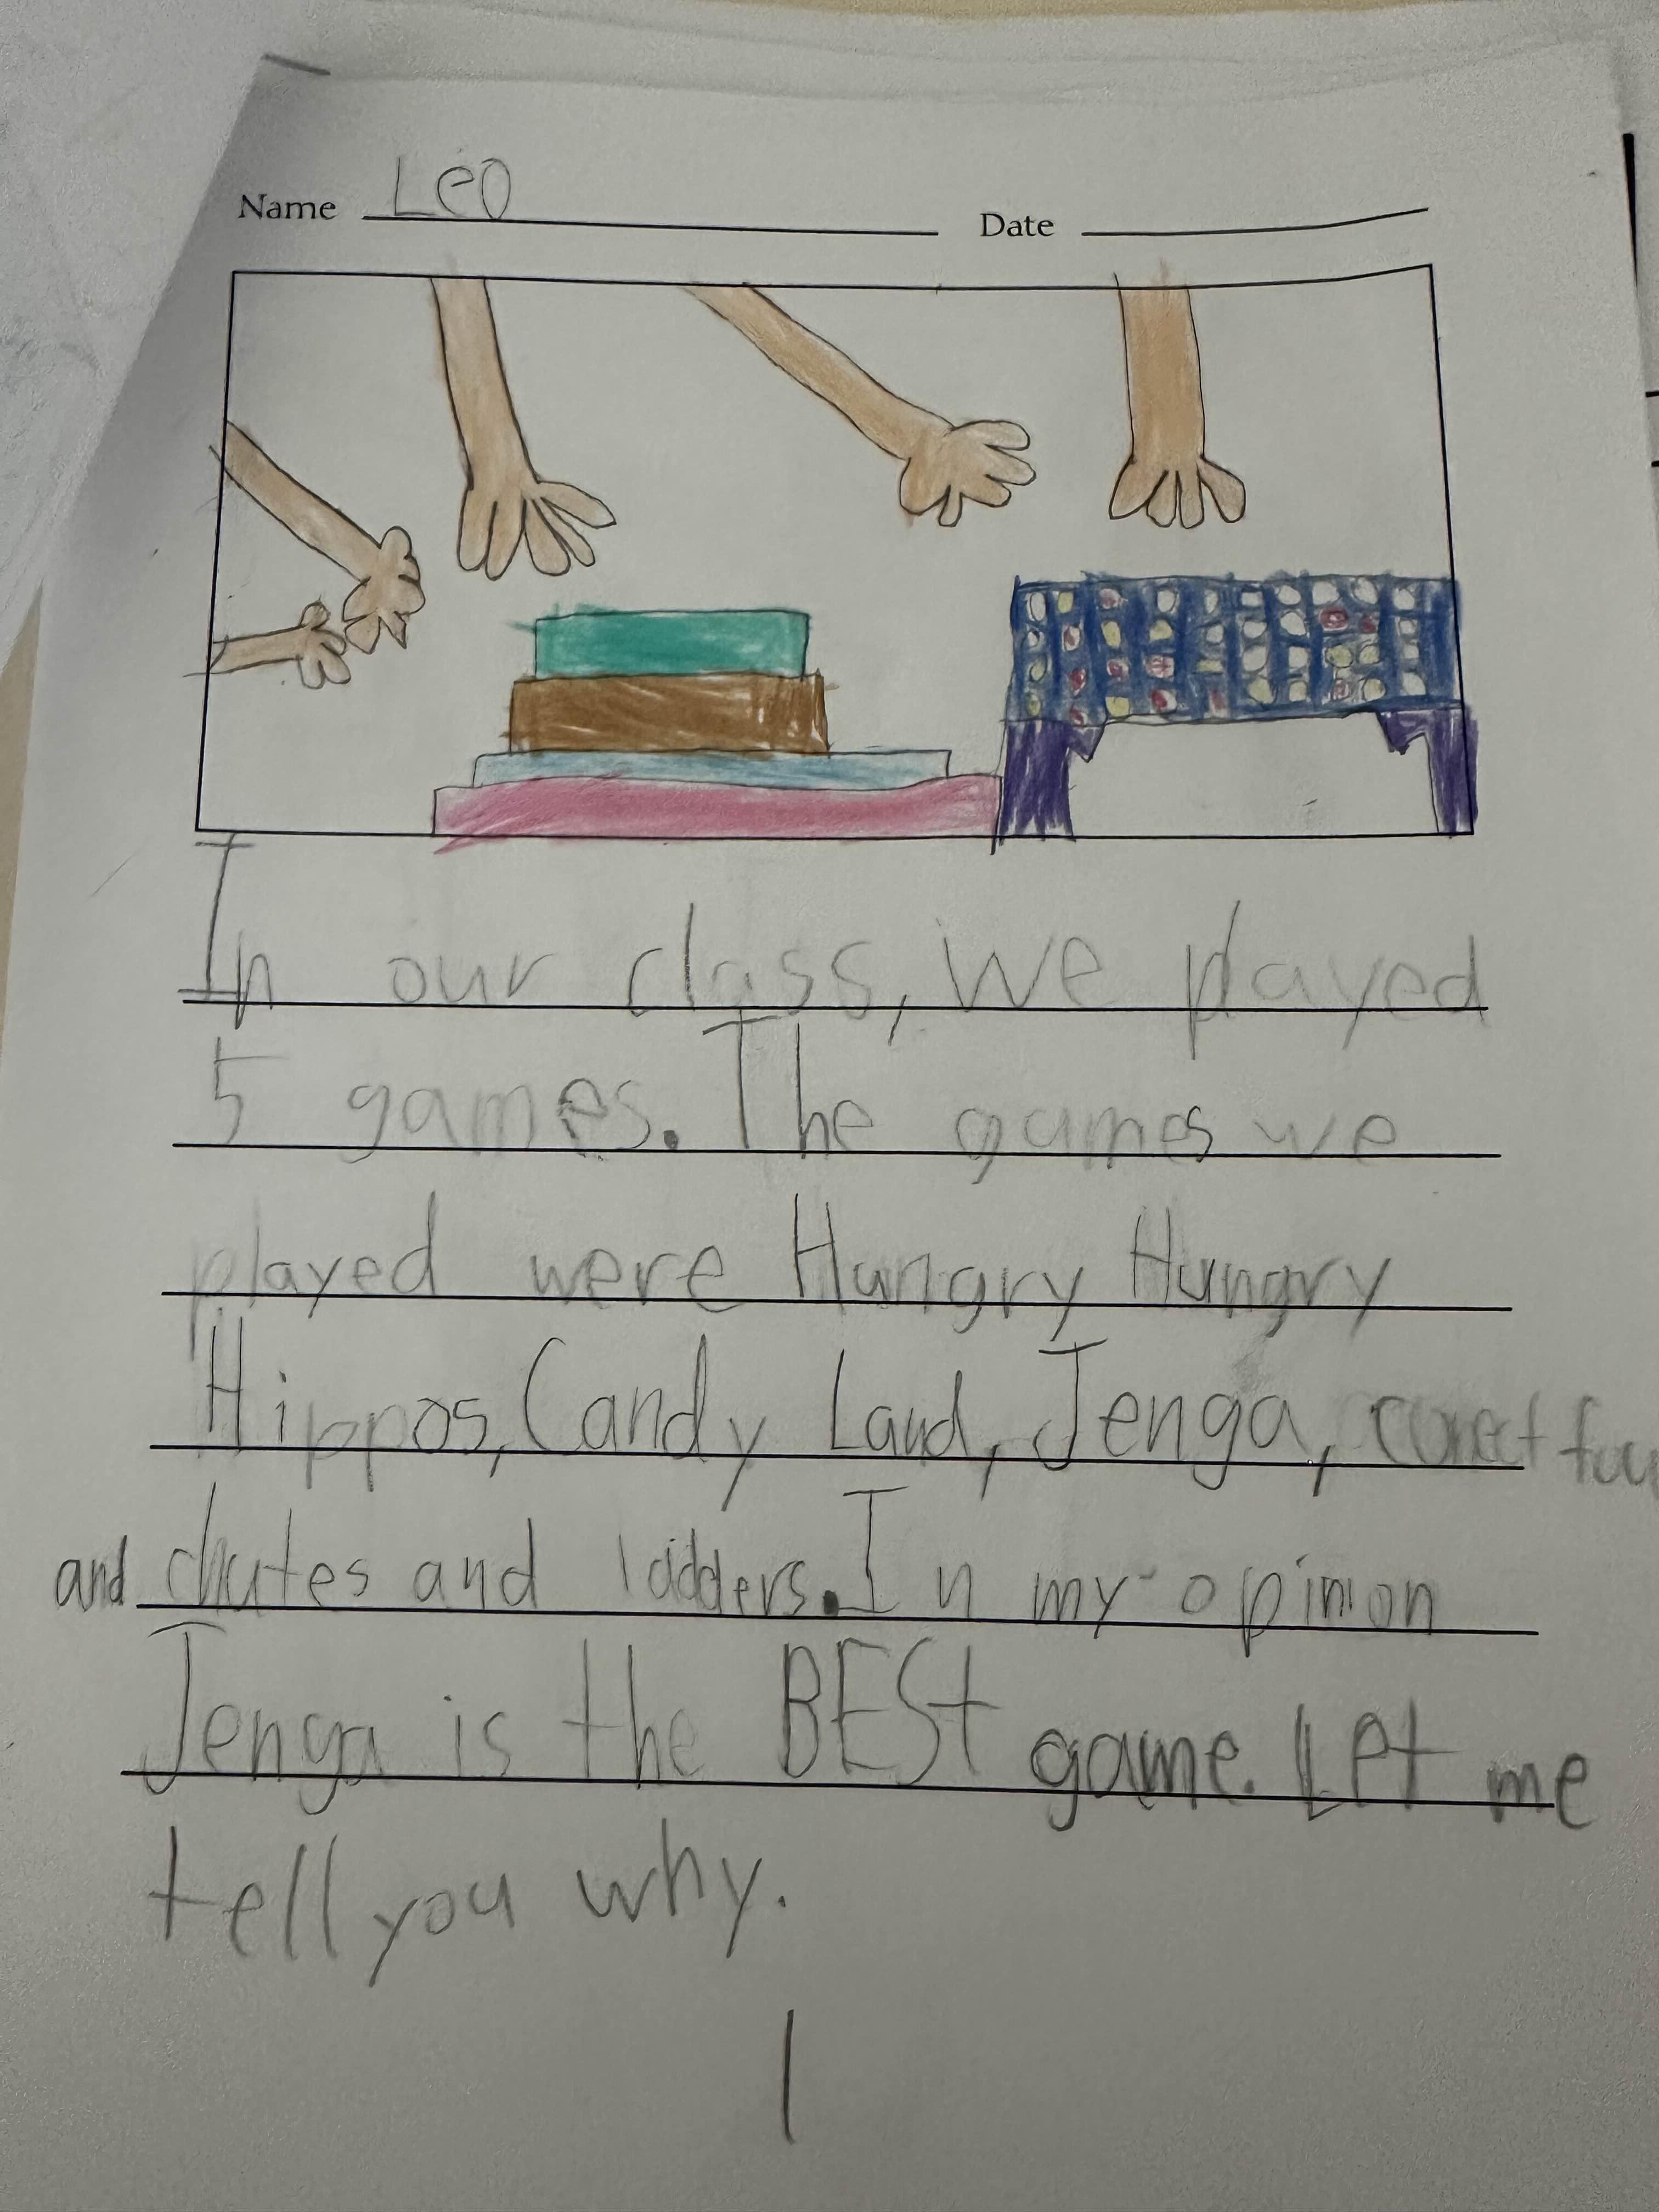 Name Leo Date
In our class, we played
5 games. The games we
played were Hungry Hungry
Hippos, Candy Land, Jenga, conect
and chutes and ladders. In my opinion
Jenga is the BESt game. Let me
tell you why.
1